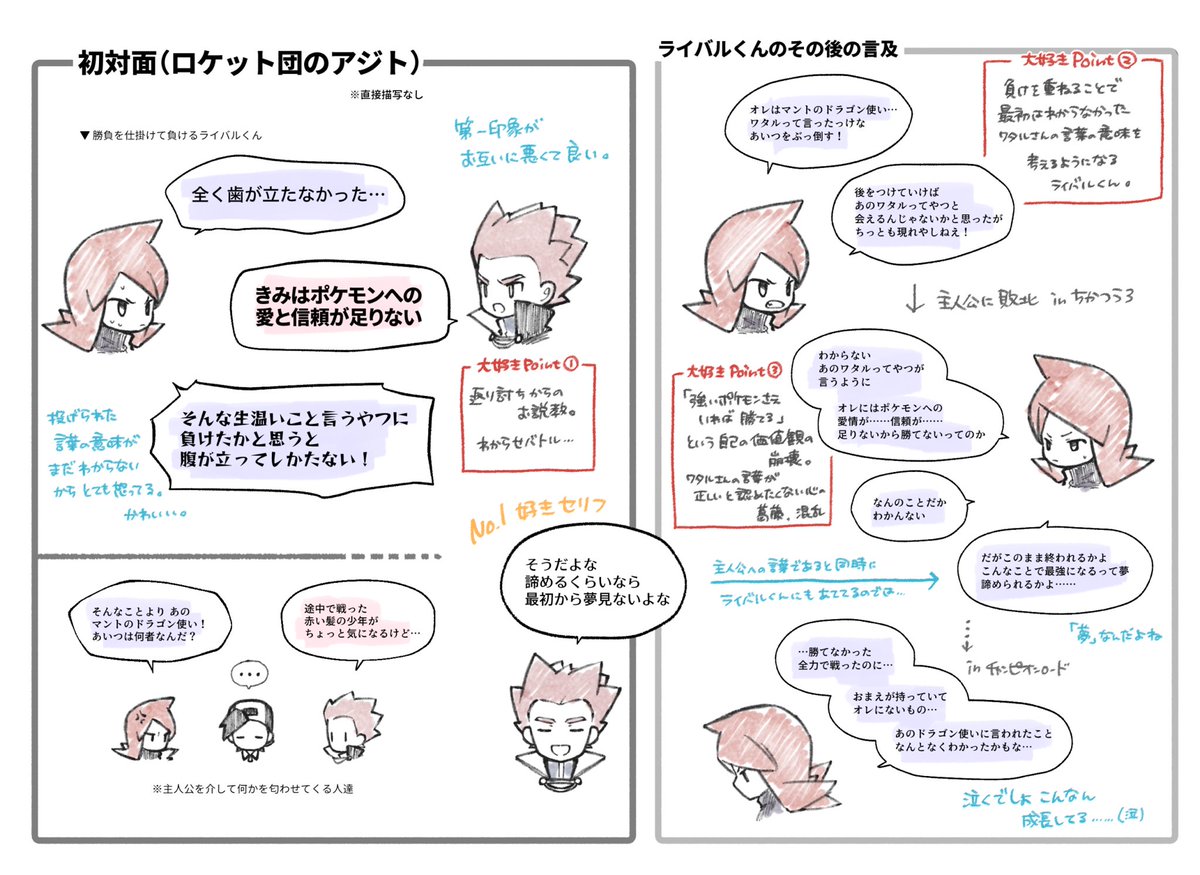 初対面（ロケット団のアジト）
※直接描写なし
▼勝負を仕掛けて負けるライバルくん
第一印象が
お互いに悪くて良い。
全く歯が立たなかった…
きみはポケモンへの
愛と信頼が足りない
大好きPoint①
返り討ちからの
お説教。
わからせバトル…
そんな生温いこと言うやつに
負けたかと思うと
腹が立ってしかたない！
投げられた
言葉の意味が
まだわからない
からとても怒ってる。
かわいい。
No.1 好きセリフ
そうだよな
諦めるくらいなら
最初から夢見ないよな
そんなことより あの
マントのドラゴン使い！
あいつは何者なんだ？
途中で戦った
赤い髪の少年が
ちょっと気になるけど…
…
※主人公を介して何かを匂わせてくる人達
ライバルくんのその後の言及
大好きPoint②
負けを重ねることで
最初はわからなかった
ワタルさんの言葉の意味を
考えるようになる
ライバルくん。
オレはマントのドラゴン使い…
ワタルって言ったっけな
あいつをぶっ倒す！
後をつけていけば
あのワタルってやつと
会えるんじゃないかと思ったが
ちっとも現れやしねえ！
↓ 主人公に敗北 inちかつうろ
わからない
あのワタルってやつが
言うように
オレにはポケモンへの
愛情が……信頼が……
足りないから勝てないってのか
大好きPoint③
「強いポケモンさえ
いれば勝てる」
という自己の価値観の
崩壊。
ワタルさんの言葉が
正しいと認めたくない心の
葛藤、混乱
なんのことだか
わかんない
だがこのまま終われるかよ
こんなことで最強になるって夢
諦められるかよ……
主人公への言葉であると同時に
ライバルくんにもあててるのでは…
「夢」なんだよね
inチャンピオンロード
…勝てなかった
全力で戦ったのに…
おまえが持っていて
オレにないもの…
あのドラゴン使いに言われたこと
なんとなくわかったかもな…
泣くでしょこんなん
成長してる……(泣)